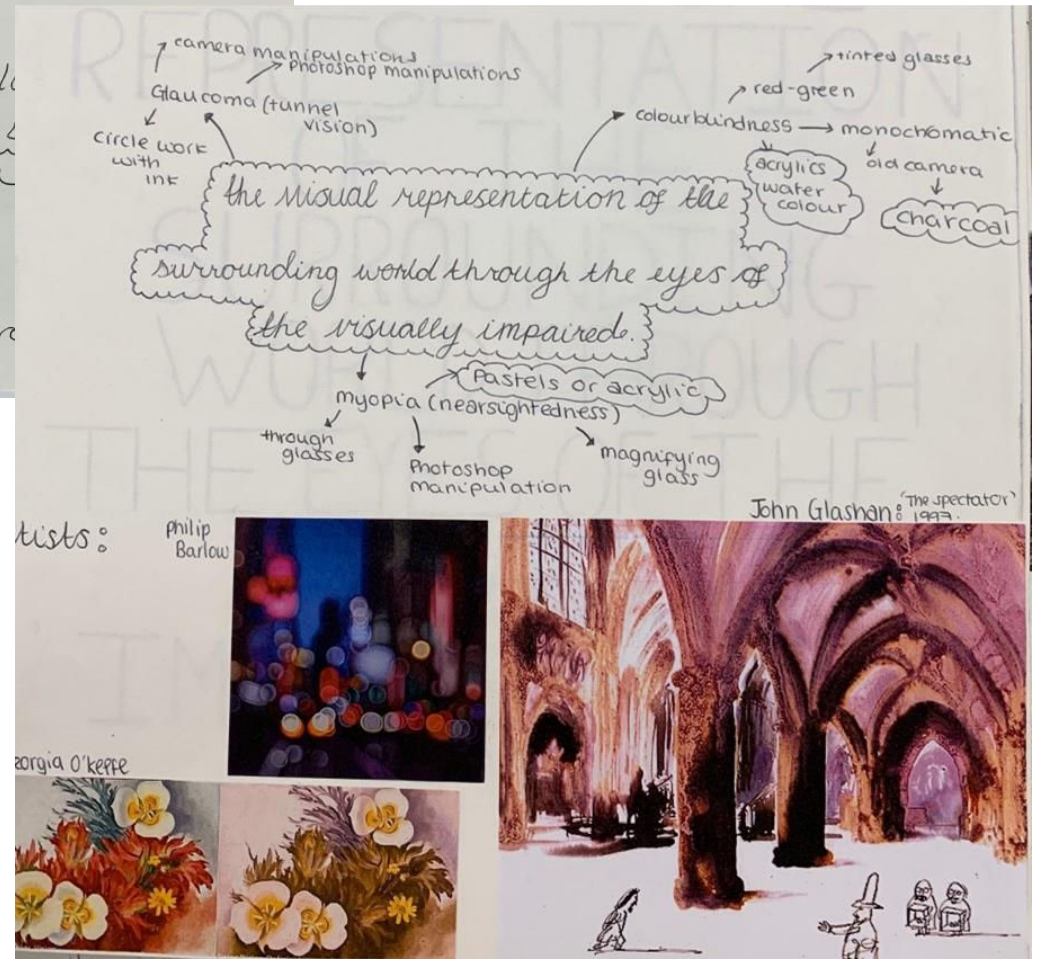 camera manipulations
Photoshop manipulations
Glaucoma (tunnel
vision)
circle work
with
ink
tinted glasses
red-green
colourblindness → monochomatic
acrylics
water
colour
old camera
charcoal
the visual representation of the
surrounding world through the eyes of
the visually impaired.
Pastels or acrylic
myopia (nearsightedness)
through
glasses
Photoshop
manipulation
magnifying
glass
John Glashan: 'The spectator'
1997.
tists:
Philip
Barlow
eorgia O'keffe
REPRESENTATION
OF THE
SURROUNDING
THROUGH
THE EYES OF THE